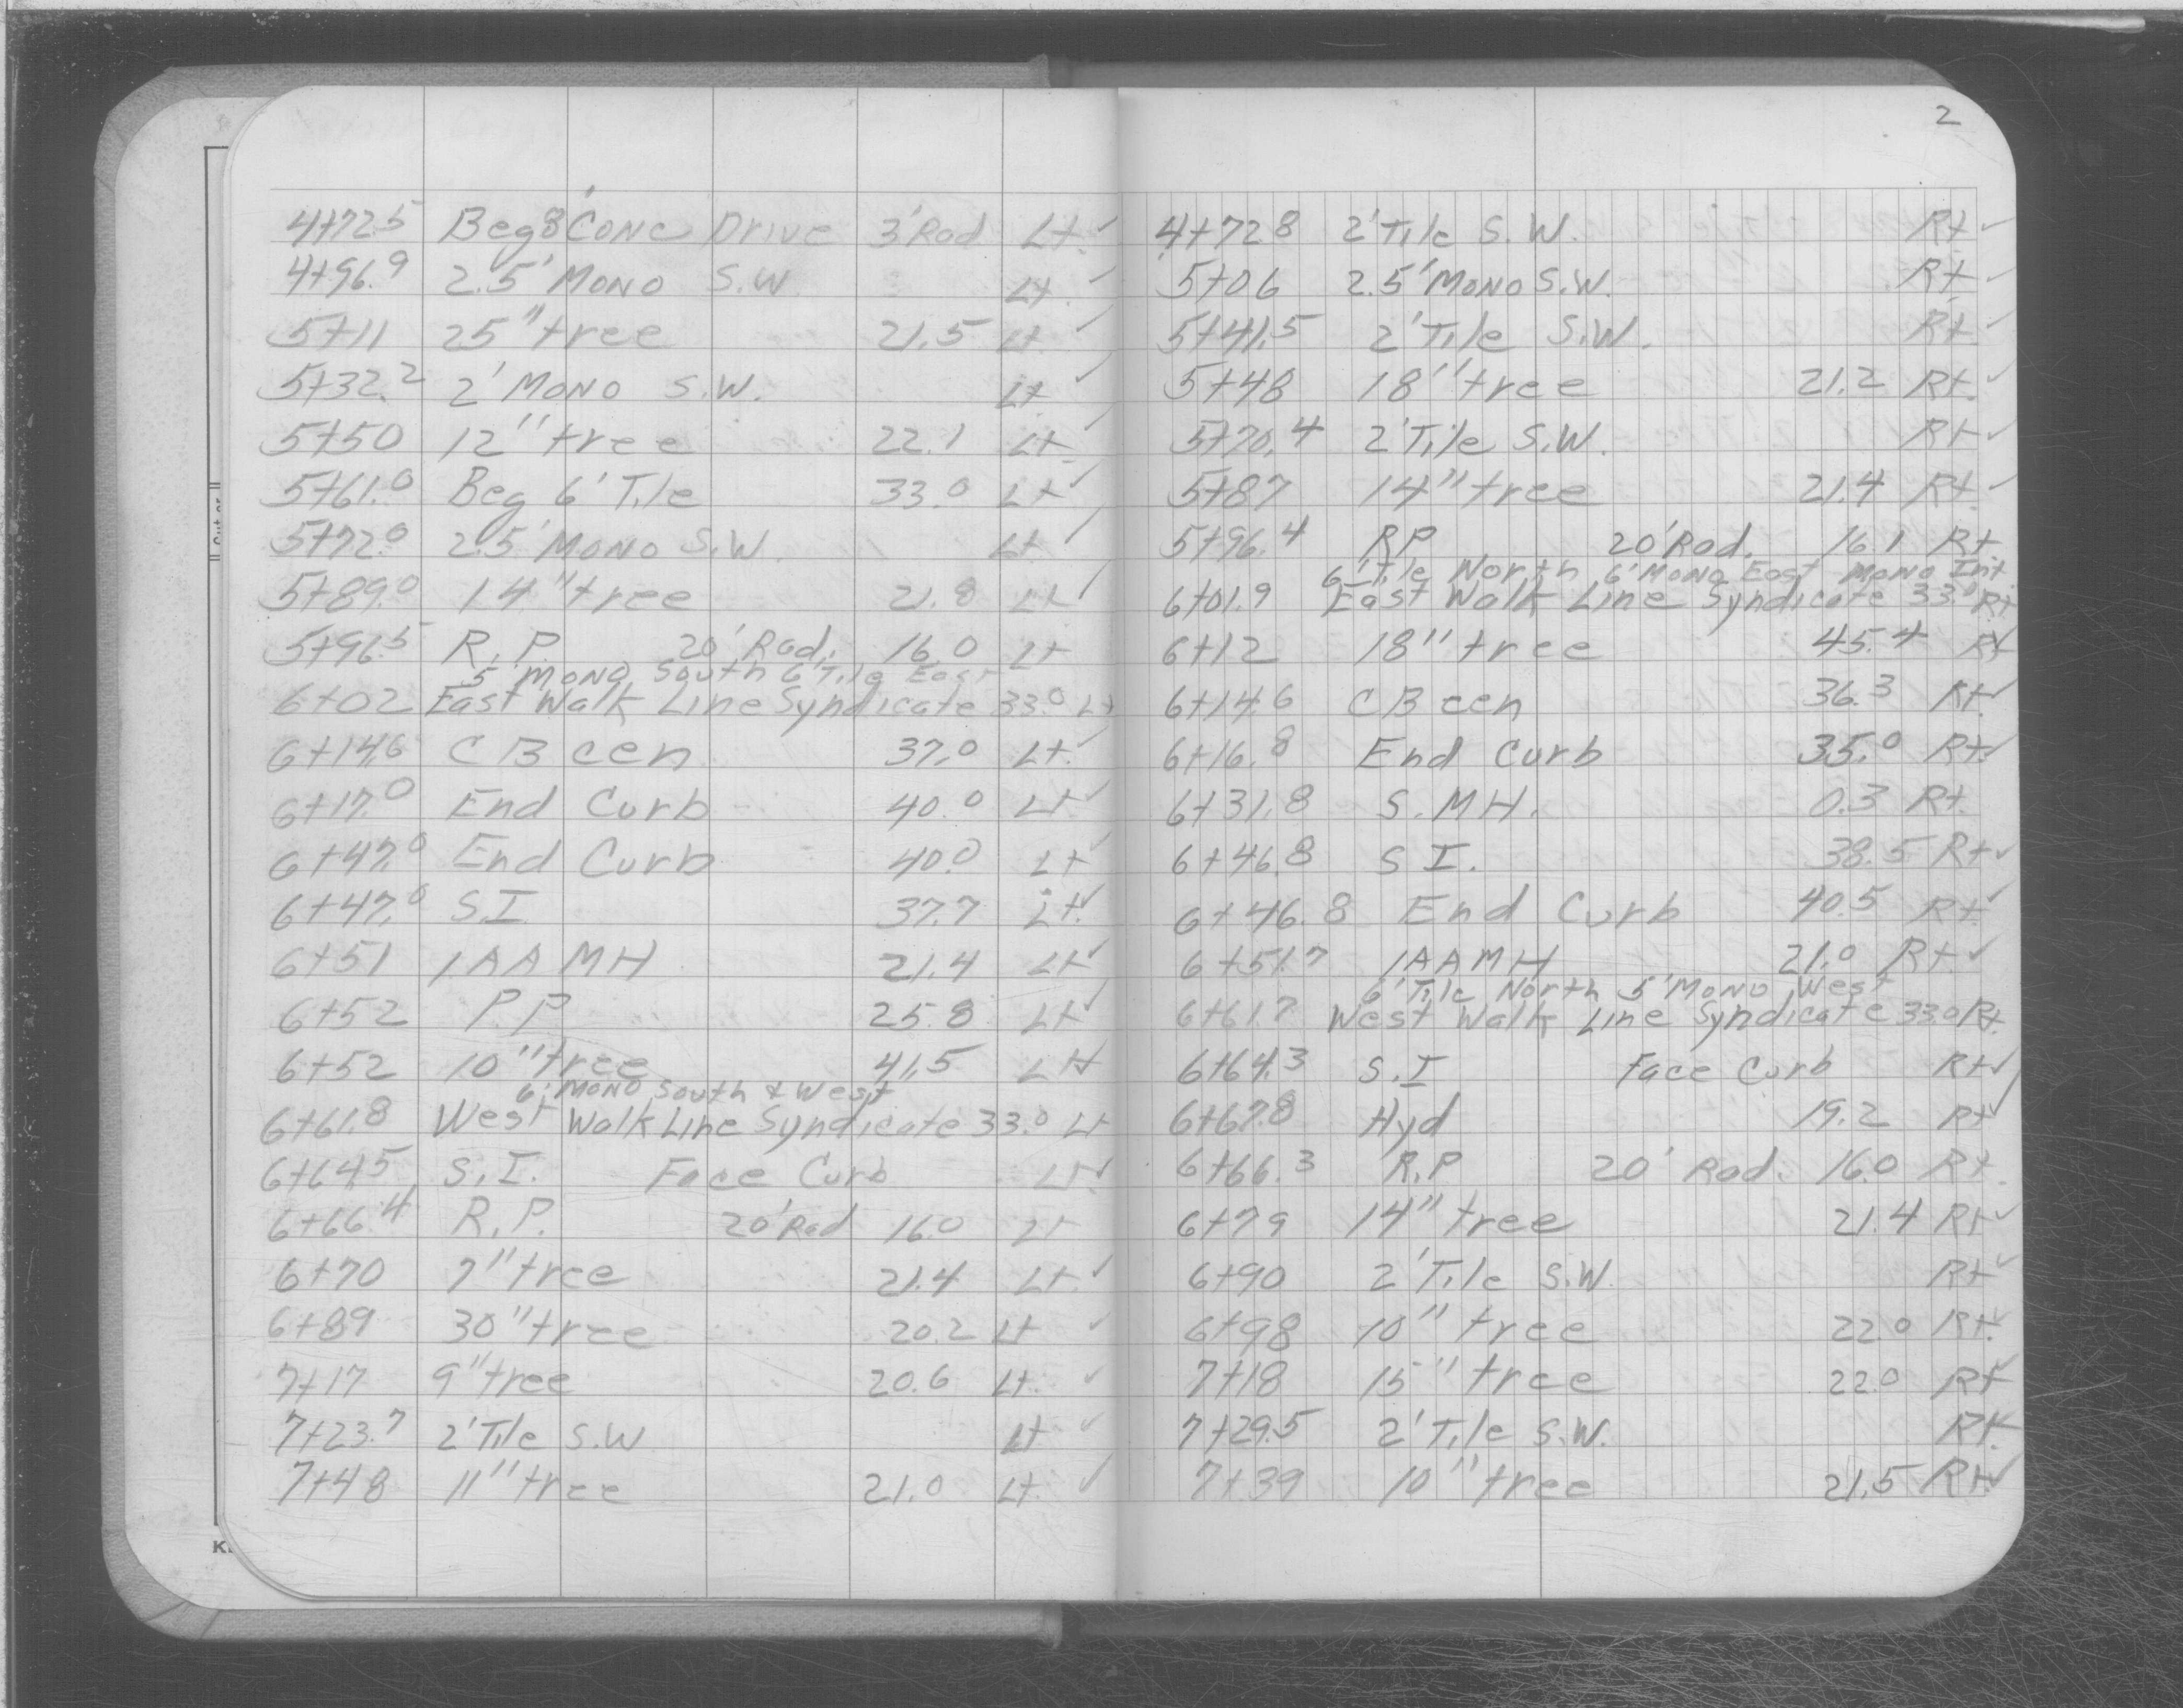 2
4+72.5 Beg 8' Conc Drive 3' Rad Lt. ✓
4+96.9 2.5' Mono S.W Lt. ✓
5+11 25" tree 21.5 Lt ✓
5+32.2 2' Mono S.W. Lt ✓
5+50 12" tree 22.1 Lt ✓
5+61.0 Beg 6' Tile 33.0 Lt ✓
5+72.0 2.5' Mono S.W. Lt ✓
5+89.0 14" tree 21.8 Lt ✓
5+96.5 R.P 20' Rad. 16.0 Lt
5' Mono South 6' Tile East
6+02 East Walk Line Syndicate 33.0 Lt
6+14.6 CB cen 37.0 Lt. ✓
6+17.0 End Curb 40.0 Lt ✓
6+47.0 End Curb 40.0 Lt ✓
6+47.0 S.I 37.7 Lt. ✓
6+51 1AA MH 21.4 Lt ✓
6+52 PP 25.8 Lt ✓
6+52 10" tree 41.5 Lt ✓
6' Mono South & West
6+61.8 West Walk Line Syndicate 33.0 Lt
6+64.5 S.I. Face Curb Lt. ✓
6+66.4 R.P. 20' Rad 16.0 Lt
6+70 7" tree 21.4 Lt. ✓
6+89 30" tree 20.2 Lt ✓
7+17 9" tree 20.6 Lt. ✓
7+23.7 2' Tile S.W Lt ✓
7+48 11" tree 21.0 Lt. ✓
4+72.8 2' Tile S.W. Rt ✓
5+06 2.5' Mono S.W. Rt ✓
5+41.5 2' Tile S.W. Rt ✓
5+48 18" tree 21.2 Rt. ✓
5+70.4 2' Tile S.W. Rt ✓
5+87 14" tree 21.4 Rt ✓
5+96.4 RP 20' Rad. 16.1 Rt.
6' Tile North 6' Mono East Mono Int.
6+01.9 East Walk Line Syndicate 33.0 Rt
6+12 18" tree 45.4 Rt ✓
6+14.6 CB cen 36.3 Rt. ✓
6+16.8 End Curb 35.0 Rt. ✓
6+31.8 S.MH. 0.3 Rt.
6+46.8 S I. 38.5 Rt ✓
6+46.8 End Curb 40.5 Rt. ✓
6+51.7 1AA MH 21.0 Rt. ✓
6' Tile North 5' Mono West
6+61.7 West Walk Line Syndicate 33.0 Rt.
6+64.3 S.I Face Curb Rt ✓
6+67.8 Hyd 19.2 Rt ✓
6+66.3 R.P 20' Rad. 16.0 Rt.
6+79 14" tree 21.4 Rt ✓
6+90 2' Tile S.W. Rt ✓
6+98 10" tree 22.0 Rt. ✓
7+18 15" tree 22.0 Rt ✓
7+29.5 2' Tile S.W. Rt. ✓
7+39 10" tree 21.5 Rt ✓